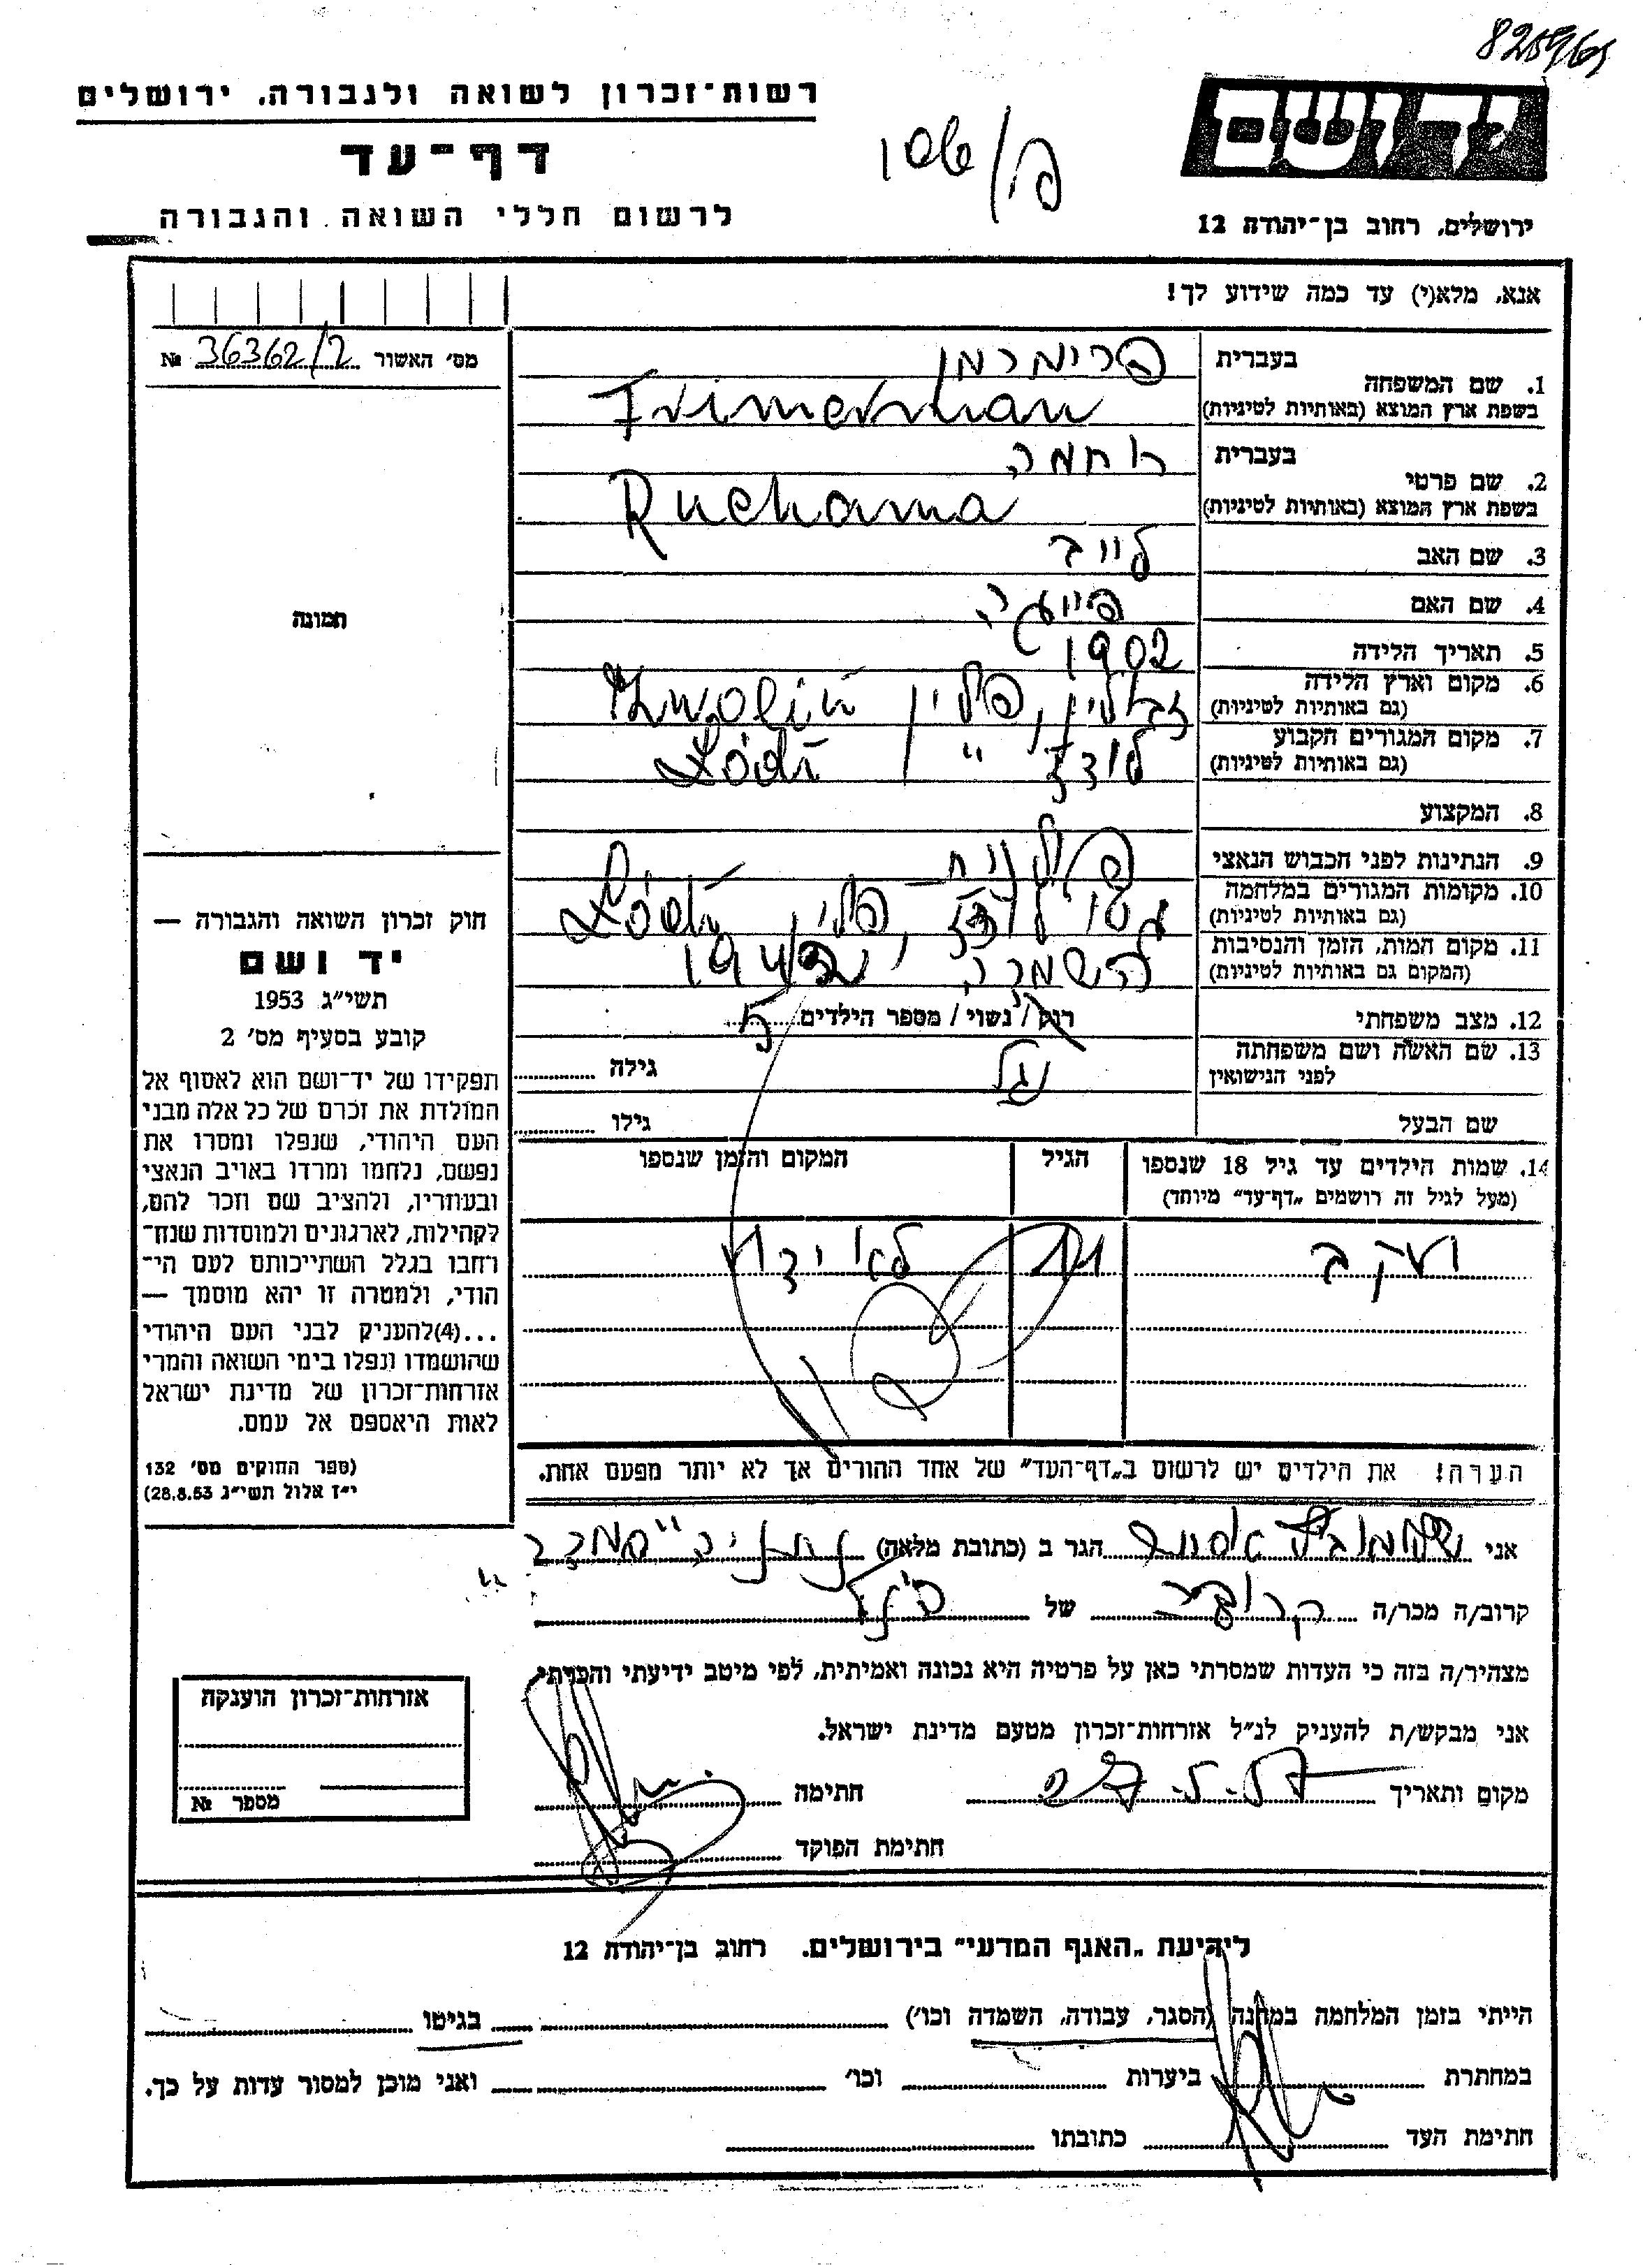 825965
רשות־זכרון לשואה ולגבורה, ירושלים
יד ושם
דף־עד
לרשום חללי השואה והגבורה
ירושלים, רחוב בן־יהודה 12
אנא, מלא(י) עד כמה שידוע לך!
מס׳ האשור 36362/2 №
1. שם המשפחה
בעברית פרימרמן
בשפת ארץ המוצא (באותיות לטיניות) Frimerman
2. שם פרטי
בעברית רוחמה
בשפת ארץ המוצא (באותיות לטיניות) Ruchama
3. שם האב לייב
4. שם האם
5. תאריך הלידה 1902
6. מקום וארץ הלידה
(גם באותיות לטיניות) זבולין, פולין Zwoliń
7. מקום המגורים הקבוע
(גם באותיות לטיניות) לודז׳ " Łódź
8. המקצוע
9. הנתינות לפני הכבוש הנאצי פולנית
10. מקומות המגורים במלחמה
(גם באותיות לטיניות) גטו לודז׳, פולין Łódź
11. מקום המות, הזמן והנסיבות
(המקום גם באותיות לטיניות) להשמדה,
12. מצב משפחתי רווק/ נשוי/ מספר הילדים 5
13. שם האשה ושם משפחתה
לפני הנישואין גילה
שם הבעל גילו
14. שמות הילדים עד גיל 18 שנספו
(מעל לגיל זה רושמים „דף־עד״ מיוחד)
הגיל
המקום והזמן שנספו
יעקב
לא ידוע
הערה! את הילדים יש לרשום ב„דף־העד״ של אחד ההורים אך לא יותר מפעם אחת.
תמונה
חוק זכרון השואה והגבורה —
יד ושם
תשי״ג 1953
קובע בסעיף מס׳ 2
תפקידו של יד־ושם הוא לאסוף אל
המולדת את זכרם של כל אלה מבני
העם היהודי, שנפלו ומסרו את
נפשם, נלחמו ומרדו באויב הנאצי
ובעוזריו, ולהציב שם וזכר להם,
לקהילות, לארגונים ולמוסדות שנח־
רחבו בגלל השתייכותם לעם הי־
הודי, ולמטרה זו יהא מוסמך —
...(4)להעניק לבני העם היהודי
שהושמדו ונפלו בימי השואה והמרי
אזרחות־זכרון של מדינת ישראל
לאות היאספם אל עמם.
(ספר החוקים מס׳ 132
י״ז אלול תשי״ג 28.8.53)
אני הגר ב (כתובת מלאה) נתניה
קרוב/ה מכר/ה של
מצהיר/ה בזה כי העדות שמסרתי כאן על פרטיה היא נכונה ואמיתית, לפי מיטב ידיעתי והכרתי
אני מבקש/ת להעניק לנ״ל אזרחות־זכרון מטעם מדינת ישראל.
מקום ותאריך חתימה
חתימת הפוקד
אזרחות־זכרון הוענקה
מספר №
לידיעת „האגף המדעי״ בירושלים. רחוב בן־יהודה 12
הייתי בזמן המלחמה במחנה (הסגר, עבודה, השמדה וכו׳) בגיטו
במחתרת ביערות וכו׳ ואני מוכן למסור עדות על כך.
חתימת העד כתובתו